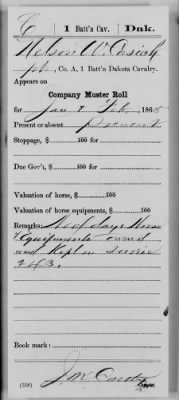 C 1 Batt'n Cav. Dak.
Nelson W
Pvt., Co. A, 1 Batt'n Dakota Cavalry.
Appears on
Company Muster Roll
for Jan & Feb, 1865
Present or absent Present
Stoppage, $ 100 for
Due Gov't, $ 100 for
Valuation of horse, $ 100
Valuation of horse equipments, $ 100
Remarks: No of days Horse
& Equipments owned
and Kept in service
Book mark:
(358) Copyist.